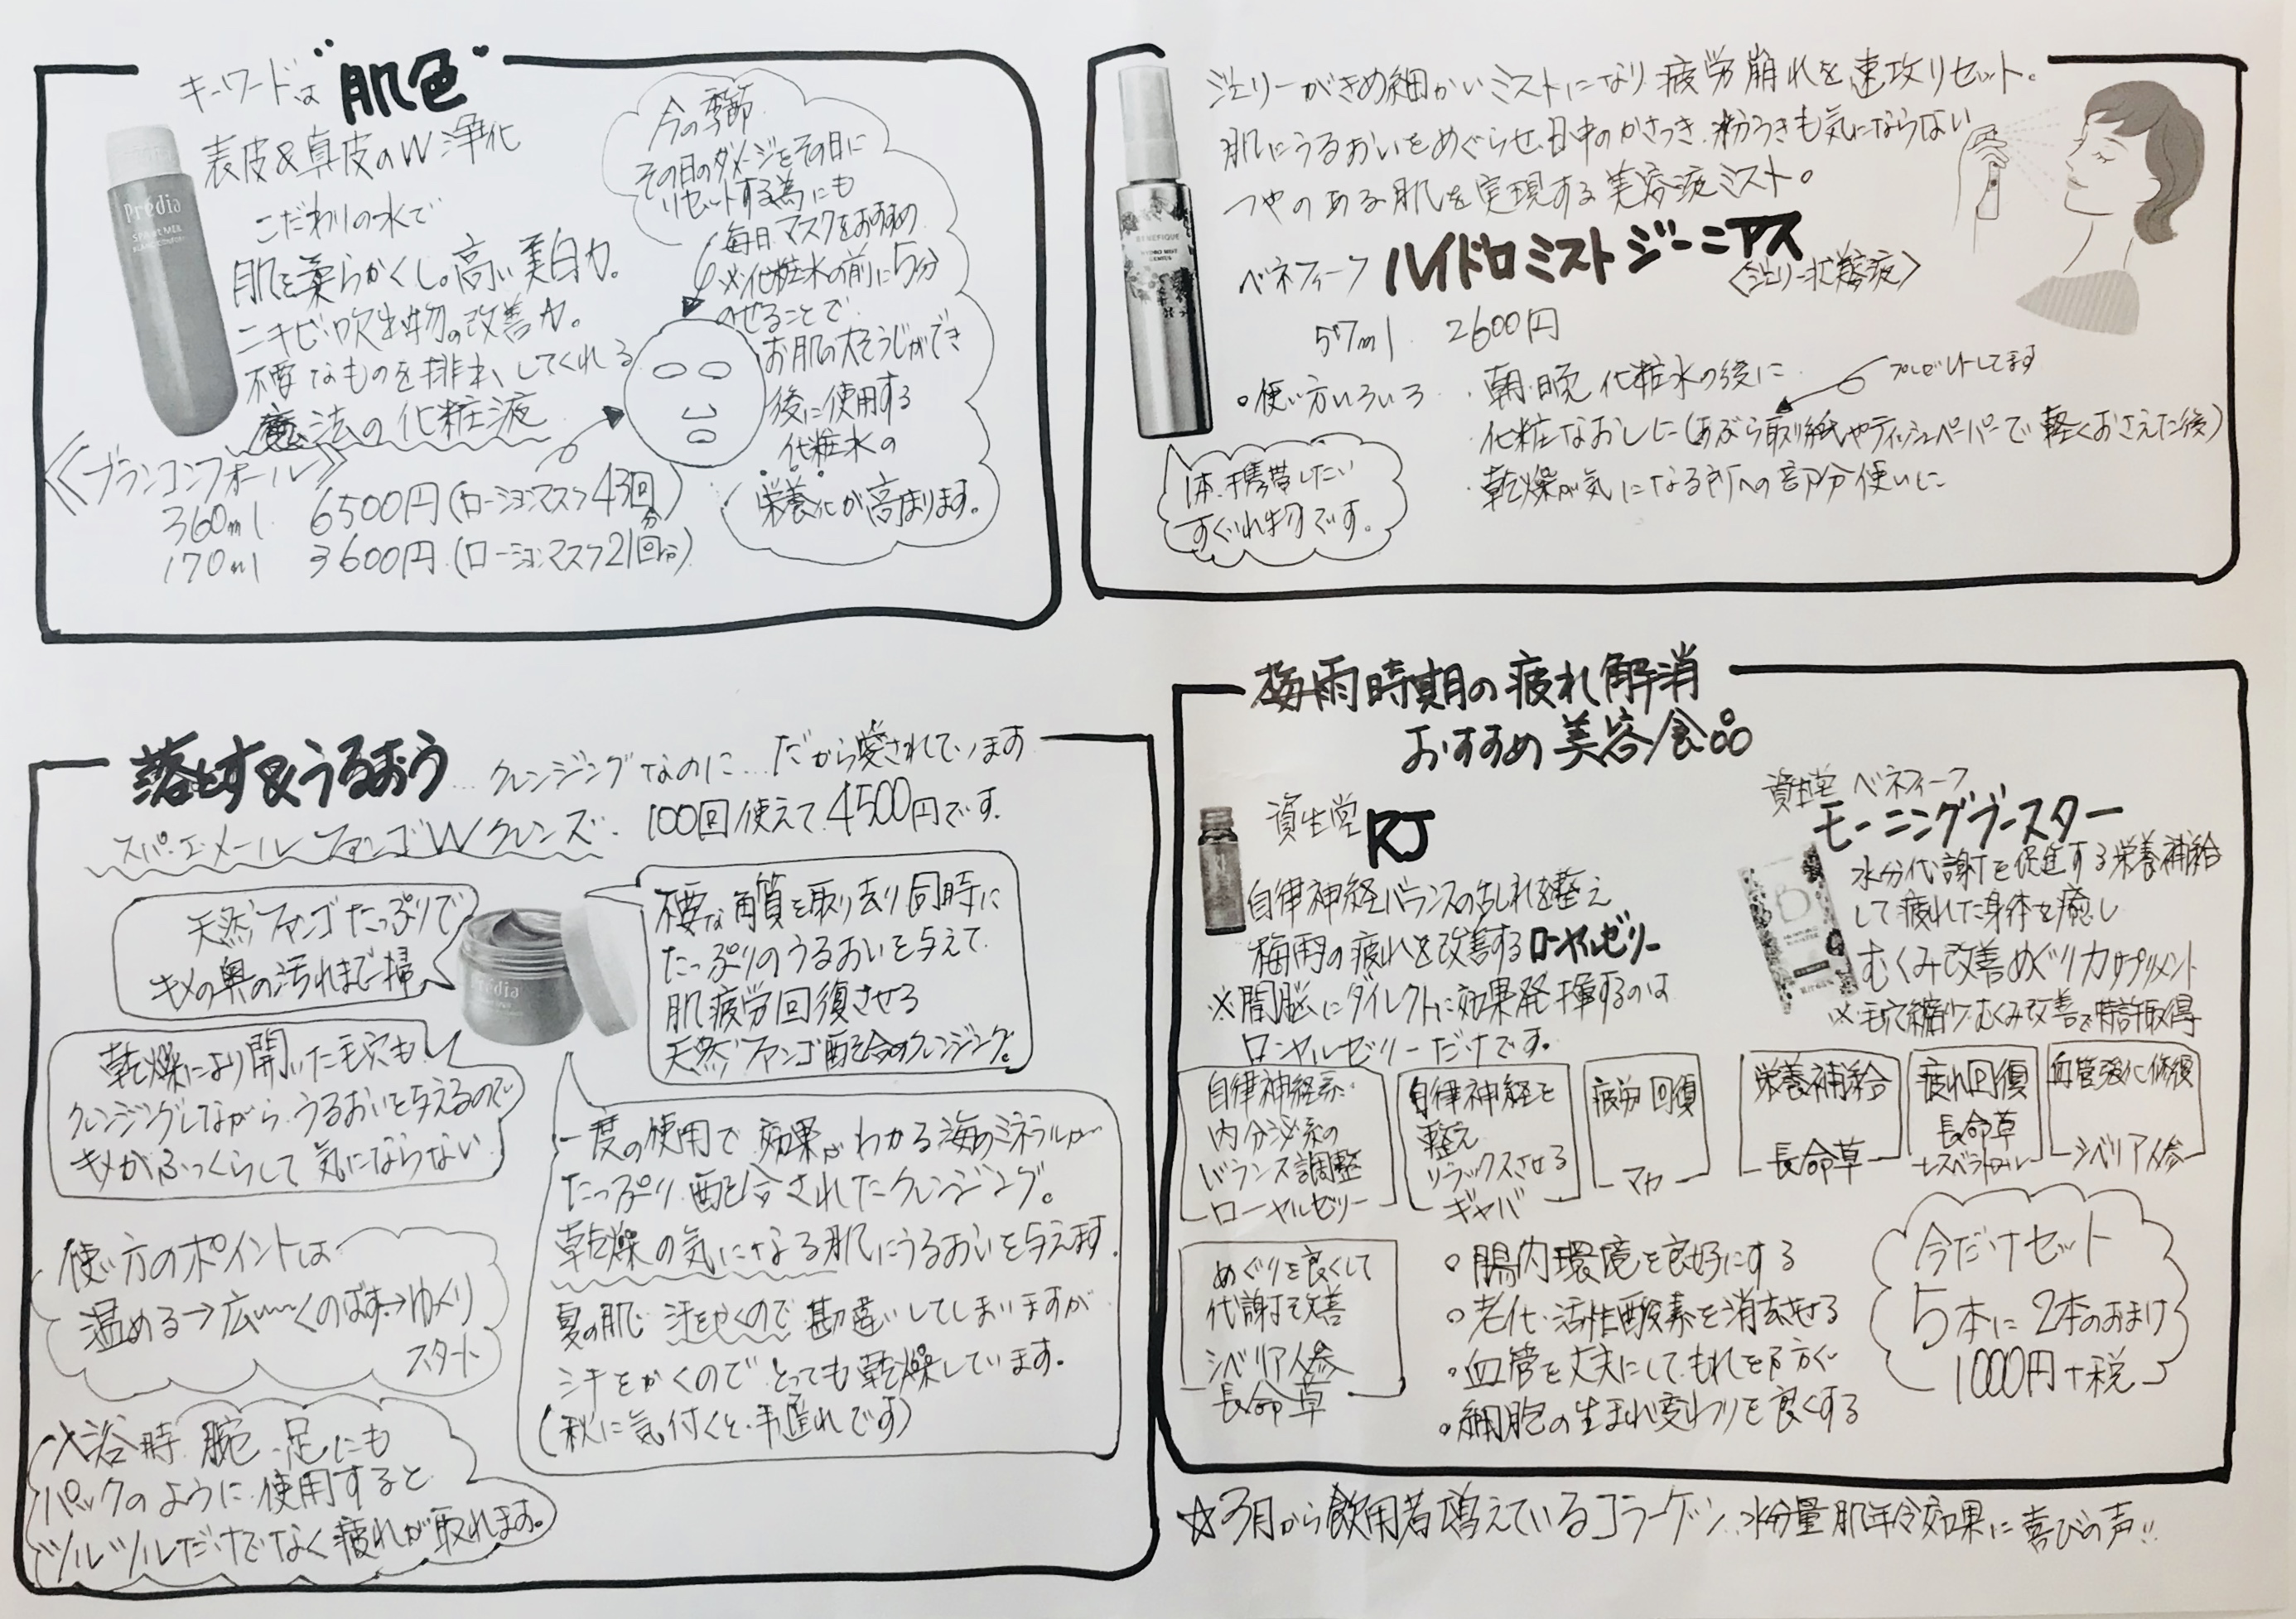 キーワードは"肌色"
表皮&真皮のW浄化
こだわりの水で
肌を柔らかくし。高い美白力。
ニキビ・吹出物の改善力。
不要なものを排出してくれる
魔法の化粧液
《ブランコンフォール》
360ml 6500円(ローションマスク43回分)
170ml 3600円(ローションマスク21回分)
Prédia
今の季節
その日のダメージをその日に
リセットする為にも
毎日マスクをおすすめ
※化粧水の前に5分
のせることで
お肌の大そうじができ
後に使用する
化粧水の
栄養化が高まります。
ジェリーがきめ細かいミストになり疲労崩れを速攻リセット。
肌にうるおいをめぐらせ、日中のかさつき、粉うきも気にならない
つやのある肌を実現する美容液ミスト。
ベネフィーク ハイドロミストジーニアス
〈ジェリー状美容液〉
57ml 2600円
BENEFIQUE
HYDRO MIST
GENIUS
。使い方いろいろ
・朝・晩 化粧水の後に
プレゼントしてます
・化粧なおしに(あぶら取り紙やティッシュペーパーで軽くおさえた後)
・乾燥が気になる所への部分使いに
1本、携帯したい
すぐれ物です。
落とす&うるおう…クレンジングなのに…だから愛されています
スパ・エ・メール ファンゴWクレンズ・100回使えて4500円です。
天然ファンゴたっぷりで
キメの奥の汚れまで一掃
Prédia
不要な角質を取り去り同時に
たっぷりのうるおいを与えて
肌疲労回復させる
天然ファンゴ配合のクレンジング。
乾燥により開いた毛穴も
クレンジングしながら、うるおいを与えるので
キメがふっくらして気にならない
一度の使用で効果がわかる海のミネラルが
たっぷり配合されたクレンジング。
乾燥の気になる肌にうるおいを与えます。
夏の肌・汗をかくので勘違いしてしまいますが
汗をかくのでとっても乾燥しています。
(秋に気付くと手遅れです)
使い方のポイントは
温める→広〜くのばす→ゆっくり
スタート
入浴時 腕・足にも
パックのように使用すると
ツルツルだけでなく疲れが取れます。
梅雨時期の疲れ解消
おすすめ美容食品
資生堂 RJ
自律神経バランスの乱れを整え
梅雨の疲れを改善するローヤルゼリー
※間脳にダイレクトに効果発揮するのは
ローヤルゼリーだけです。
資生堂 ベネフィーク
モーニングブースター
水分代謝を促進する栄養補給
して疲れた身体を癒し
むくみ改善めぐり力サプリメント
※毛穴縮小・むくみ改善で特許取得
自律神経系・
内分泌系の
バランス調整
ローヤルゼリー
自律神経を
整え
リラックスさせる
ギャバ
疲労回復
マカ
栄養補給
長命草
疲れ回復
長命草
レスベラトロール
血管強化修復
シベリア人参
めぐりを良くして
代謝を改善
シベリア人参
長命草
。腸内環境を良好にする
。老化・活性酸素を消去させる
。血管を丈夫にして、もれを防ぐ
。細胞の生まれ変わりを良くする
今だけセット
5本に2本のおまけ
1000円+税
☆3月から飲用者増えているコラーゲン、水分量 肌年令効果に喜びの声!!